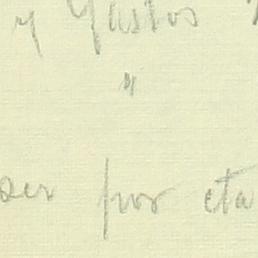 y Gastos
"
ser por eta